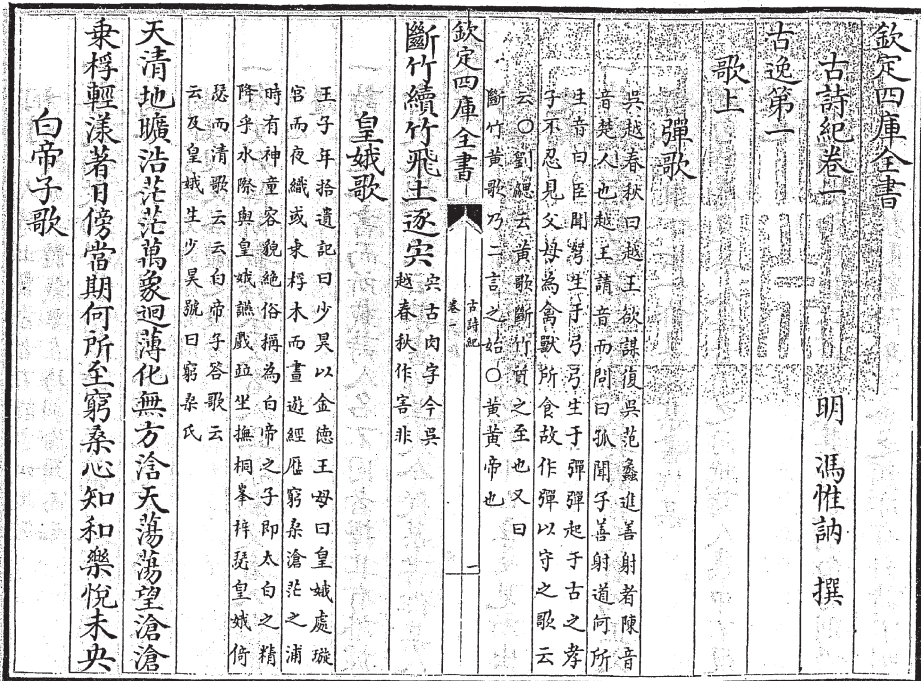 欽定四庫全書
古詩紀卷一
明 馮惟訥 撰
古逸第一
歌上
彈歌
吳越春秋曰越王欲謀復吳范蠡進善射者陳音
音楚人也越王請音而問曰孤聞子善射道何所
生音曰臣聞弩生于弓弓生于彈彈起于古之孝
子不忍見父母為禽獸所食故作彈以守之歌云
云○劉勰云黃歌斷竹質之至也又曰
斷竹黃歌乃二言之始○黃黃帝也
欽定四庫全書
古詩紀
卷一
一
斷竹續竹飛土逐宍
宍古肉字今吳
越春秋作害非
皇娥歌
王子年拾遺記曰少昊以金德王母曰皇娥處璇
宮而夜織或乗桴木而晝遊經歴窮桑滄茫之浦
時有神童容貌絶俗稱為白帝之子即太白之精
降乎水際與皇娥讌戲並坐撫桐峯梓瑟皇娥倚
瑟而清歌云云白帝子答歌云
云及皇娥生少昊號曰窮桑氏
天清地曠浩茫茫萬象迴薄化無方浛天蕩蕩望滄滄
乗桴輕漾著日傍當期何所至窮桑心知和樂悅未央
白帝子歌